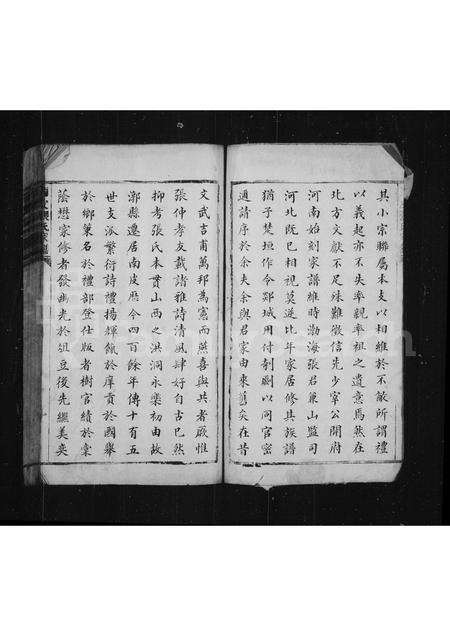 其小宗聯屬本支以相維於不敝所謂禮
以義起亦不失率親率祖之遺意焉然在
北方文獻不足殊難徵信先少宰公開府
河南始刻家譜維時渤海張君兼山監司
河北既已相視莫逆比年家居修其族譜
猶子楚垣作令鄴城用付剞劂以同官密
邇請序於余夫余與君家由來舊矣在昔
文武吉甫萬邦為憲而燕喜與共者厥惟
張仲孝友載諸雅詩清風肆好自古已然
抑考張氏本貫山西之洪洞永樂初由故
漷縣遷居南皮歷今四百餘年傳十有五
世支派繁衍詩禮揚輝餼於庠貢於國舉
於鄉策名於禮部登仕版者樹官績於
蔭懋家修者發幽光於俎豆後先繼美奕